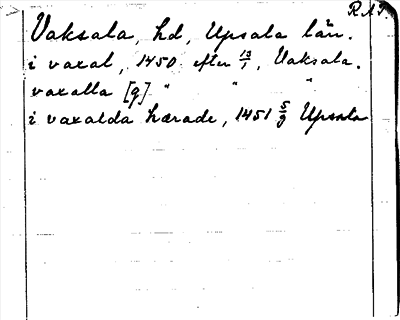 R.A.P.
Vaksala, hd, Upsala län.
i vaxal, 1450 efter 13/1, Vaksala.
vaxalla [q] " " "
i vaxalda hærade, 1451 5/9 Upsala